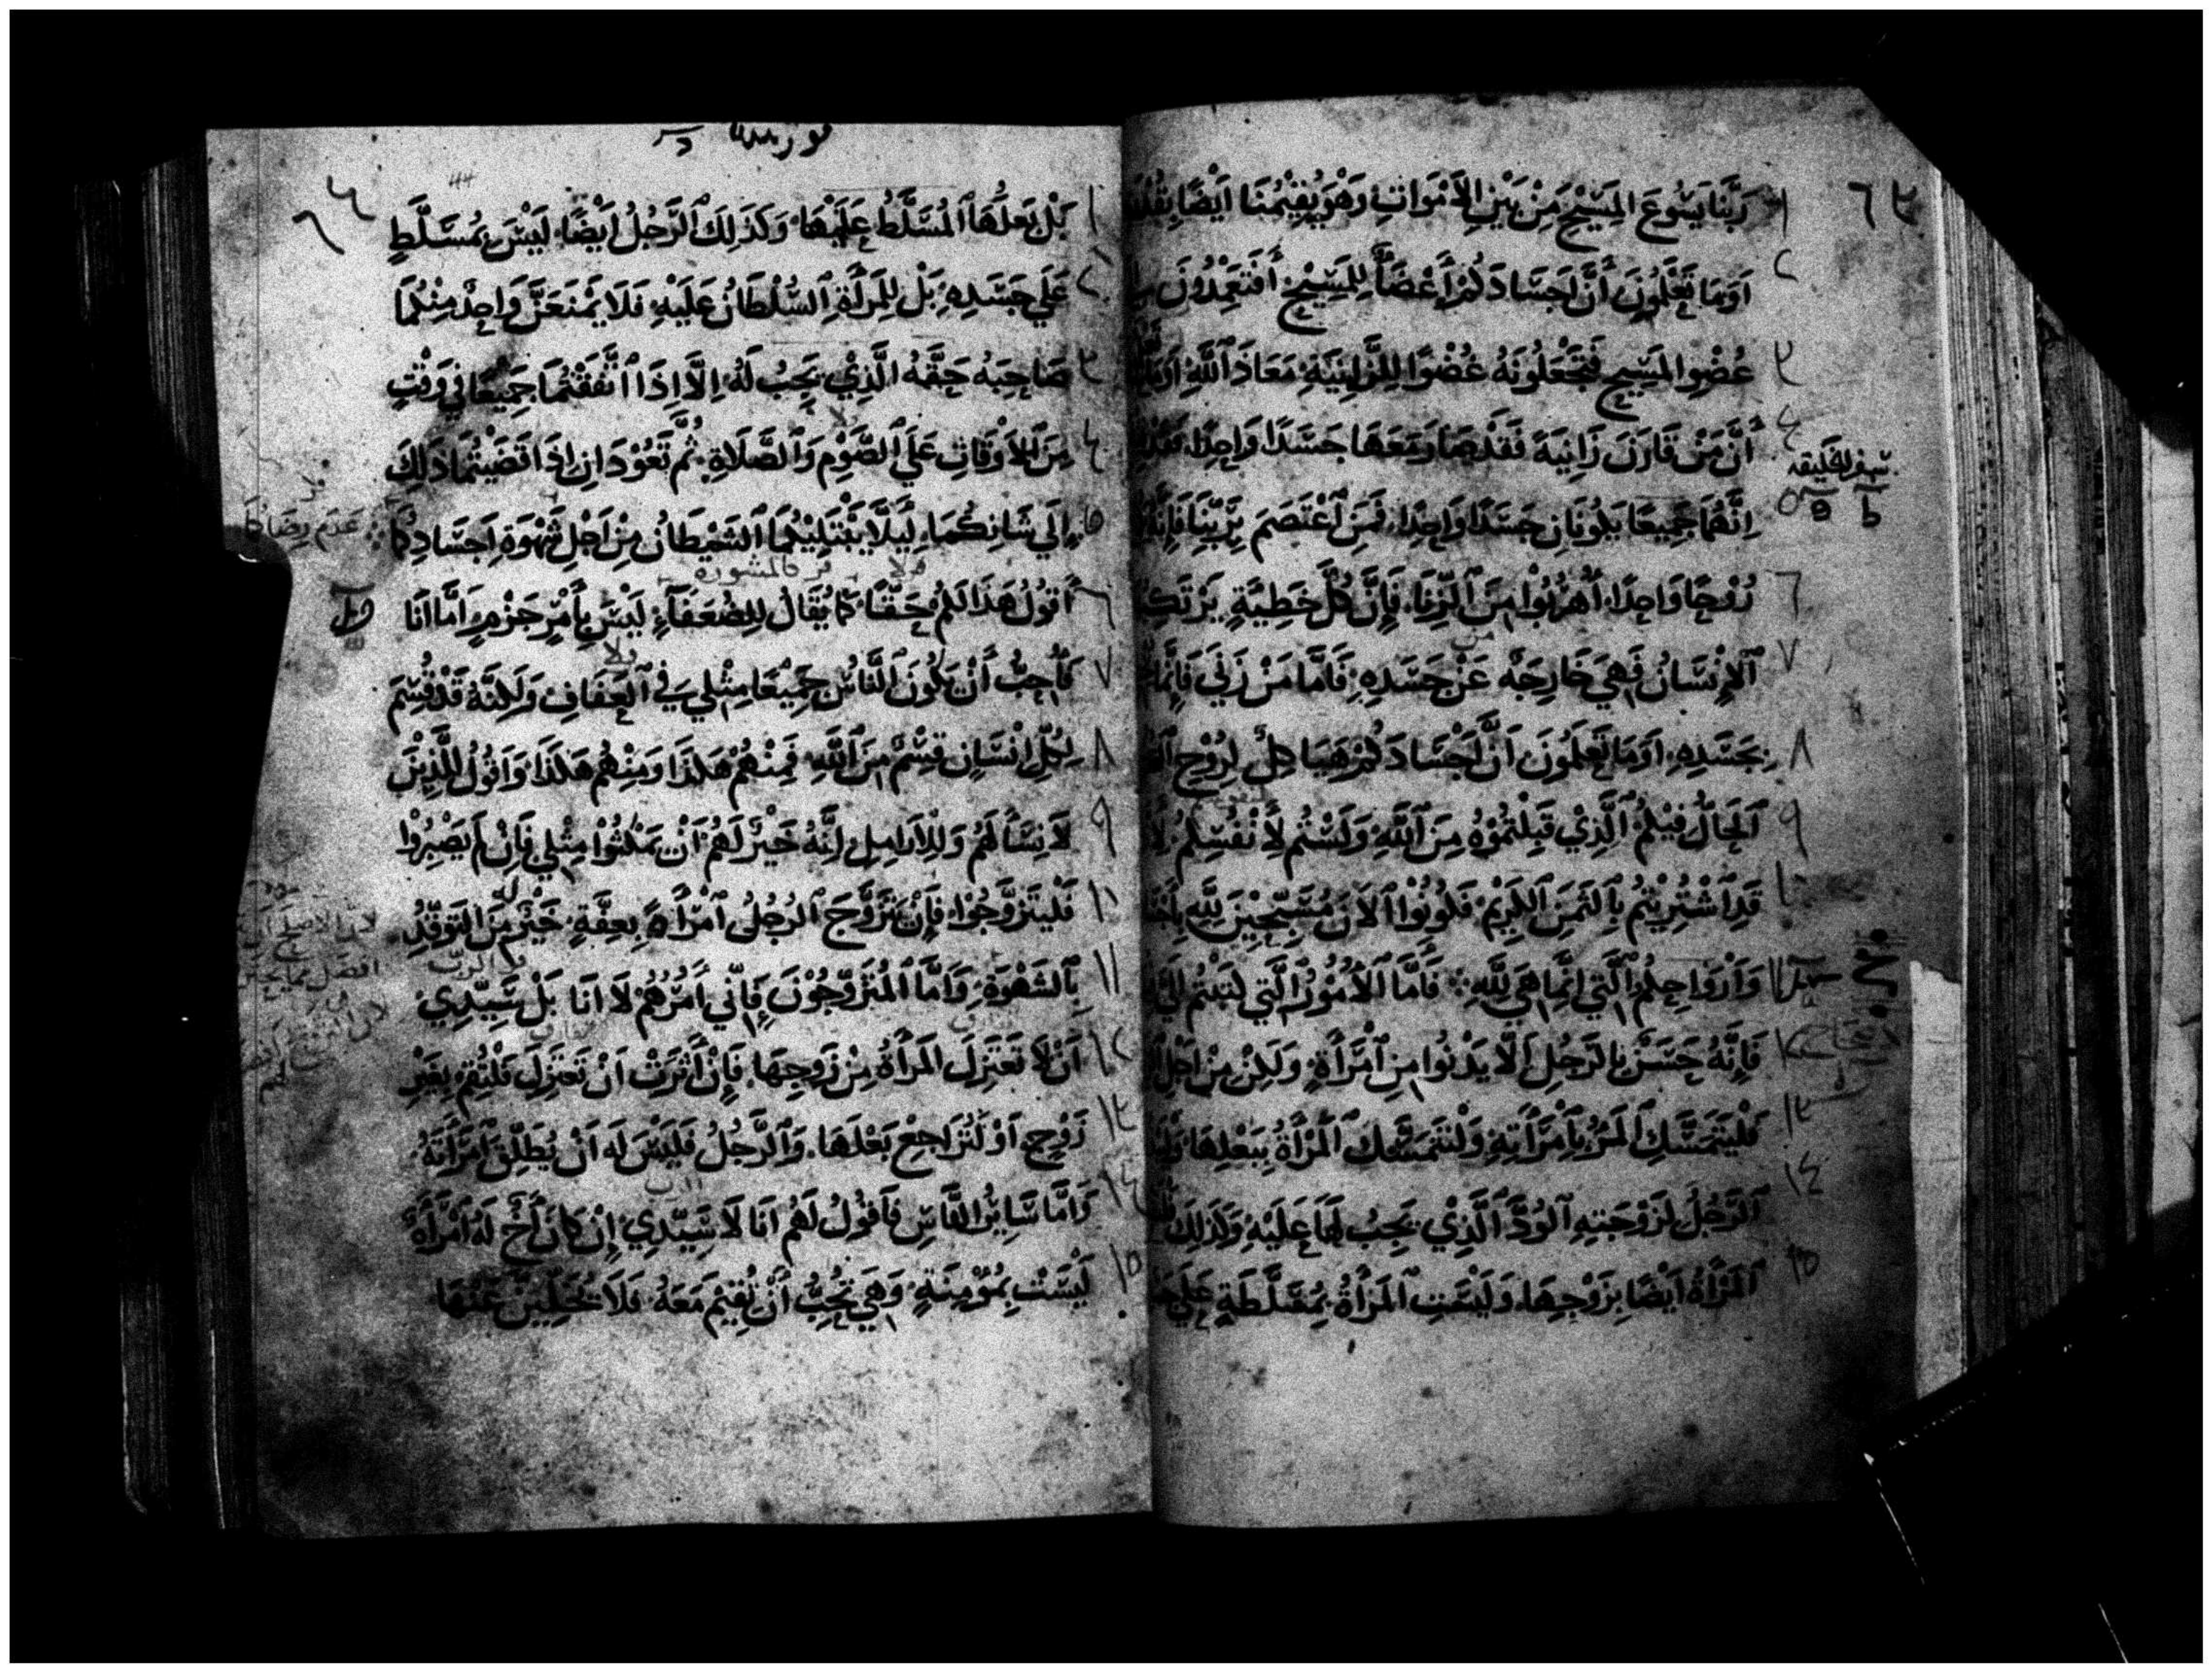 رَبَّنَا يَسُوعَ المَسِيْحِ مِنْ بَيْنِ الاَمْوَاتِ وَهْوَ يُقِيْمُنَا اَيْضًا بِقُوَّ
اَوَمَا تَعْلَمُونَ أَنَّ اَجسَادَكُمْ أَعْضَآءٌ لِلمَسِيْحِ أَفَتَعْمِدُونَ
عُضْوِ المَسِيحِ فَتَجْعَلُونَهُ عُضْوًا لِلزَّانِيَةِ مَعَاذَ ٱللَّهِ
أَنَّ مَنْ قَارَنَ زَانِيَةً فَقَدْ صَارَ مَعَهَا جَسَدًا وَاحِدًا
اِنَّهُمَا جَمِيعًا يَكُونَانِ جَسَدًا وَاحِدًا فَمَنِ ٱعْتَصَمَ بِرَبِّنَا فَإِنَّهُ
رُوْحًا وَاحِدًا أُهْرُبُوا مِنَ ٱلزِّنَا فَإِنَّ كُلَّ خَطِيَّةٍ يَرْتَكِ
ٱلاِنْسَانُ فَهِيَ خَارِجَةٌ عَنْ جَسَدِهِ فَاَمَّا مَنْ زَنَى فَإِنَّمَا
بِجَسَدِهِ اَوَمَا تَعْلَمُونَ اَنَّ اَجْسَادَكُمْ هَيَاكِلُ لِرُوْحِ
ٱلْحَالِّ فِيْكُمُ ٱلَّذِيْ قَبِلْتُمُوْهُ مِنَ ٱللَّهِ وَلَسْتُم لِأَنْفُسِكُمْ
قَدِ ٱشْتُرِيْتُمْ بِالثَمَنِ ٱلكَرِيْمِ فَكُونُوْا ٱلاَنَ مُسَبِّحِيْنَ لِلَّهِ
وَأَرْوَاحِكُمُ ٱلَّتِي اِنَّمَا هِيَ لِلَّهِ فَأَمَّا ٱلأُمُوْرُ ٱلَّتِي كَتَبْتُم
فَإِنَّهُ حَسَنٌ بِالرَجُلِ اَلَّا يَدْنُوا مِنِ ٱمْرَأَةٍ وَلَكِنْ مِنْ اَجْلِ
فَلْيَتَمَسَّكِ ٱلمَرْءُ بِٱمْرَأَتِهِ وَلْتَتَمَسَّكِ ٱلْمَرْأَةُ بِبَعْلِهَا
ٱلرَّجُلُ لِزَوْجَتِهِ ٱلْوُدَّ ٱلَّذِيْ يَجِبُ لَهَا عَلَيْهِ وَكَذَلِكَ
ٱلمَرْأَةُ اَيْضًا بِزَوْجِهَا وَلَيْسَتِ ٱلمَرْأَةُ بِمُسَلَّطَةٍ عَلَى
سفر الخليقه
بَلْ بَعلُهَا ٱلمُسَلَّطُ عَلَيْهَا وَكَذَلِكَ ٱلرَّجُلُ اَيْضًا لَيْسَ بِمُسَلَّطٍ
عَلَي جَسَدِهِ بَلْ لِلمَرأَةِ ٱلسُّلْطَانُ عَلَيْهِ فَلَا يَمْنَعَنَّ وَاحِدٌ مِنْكُمَا
صَاحِبَهُ حَقَّهُ الَّذِيْ يَجِبُ لَهُ اِلَّا اِذَا ٱتَّفَقْتُمَا جَمِيْعًا فِي وَقْتٍ
مِنَ ٱلاَوْقَاتِ عَلَي ٱلصَّوْمِ وَٱلصَّلَاةِ ثُمَّ تَعُوْدَانِ اِذَا قَضَيْتُمَا ذَلِكَ
اِلَي شَانِكُمَا لِيَلَّا يَبْتَلِيْكُمَا ٱلشَيْطَانُ مِنْ اَجْلِ شَهْوَةِ اَجسَادِكُمَا
أَقُوْلُ هَذَا لَكُمْ حَقًّا كَمَا يُقَالُ لِلضُعَفَآءِ لَيْسَ بِأَمْرٍ جَزْمٍ اَمَّا اَنَا
فَأُحِبُّ أَنْ يَكُوْنَ ٱلنَّاسُ جَمِيْعًا مِثْلِي فِي ٱلعَفَافِ وَلَكِنَّهُ قَدْ قُسِمَ
لِكُلِّ اِنْسَانٍ قِسْمٌ مِنَ ٱللَّهِ فَمِنْهُمْ هَكَذَا وَمِنْهُمْ هَكَذَا وَاَقُوْلُ لِلَّذِيْنَ
لَا نِسَآءَ لَهُم وَلِلاَرَامِلِ اِنَّهُ خَيْرٌ لَهُمْ اَنْ يَمْكُثُوْا مِثْلِي فَإِنْ لَم يَصْبِرُوْا
فَلْيَتَزَوَّجُوْا فَإِنْ تَزَوَّجَ ٱلرَجُلُ ٱمْرَأَةً بِعِفَّةٍ خَيْرٌ مِنَ التَوَقُّدِ
بِٱلشَهْوَةِ وَاَمَّا ٱلمُتَزَوِّجُوْنَ فَإِنِّي اٰمُرُهُمْ لَا اَنَا بَلْ سَيِّدِي
اَنْ لَا تَعْتَزِلَ المَرأَةُ مِنْ زَوْجِهَا فَإِنْ أَثَرَتْ اَنْ تَعتَزِلَ فَلْتُقِمْ بِغَيْرِ
زَوْجٍ اَوْ لْتُرَاجِعْ بَعْلَهَا وَٱلرَّجُلُ فَلَيْسَ لَهُ اَنْ يُطَلِّقَ ٱمْرَأَتَهُ
وَاَمَّا سَايِرُ النَّاسِ فَأَقُوْلُ لَهُم اَنَا لَا سَيِّدِي إِنْ كَانَ أَخٌ لَهُ ٱمْرَأَةٌ
لَيْسَتْ بِمُوْمِنَةٍ وَهِيَ تُحِبُّ أَنْ تُقِيْمَ مَعَهُ فَلَا يُخَلِّيَنَّ عَنْهَا